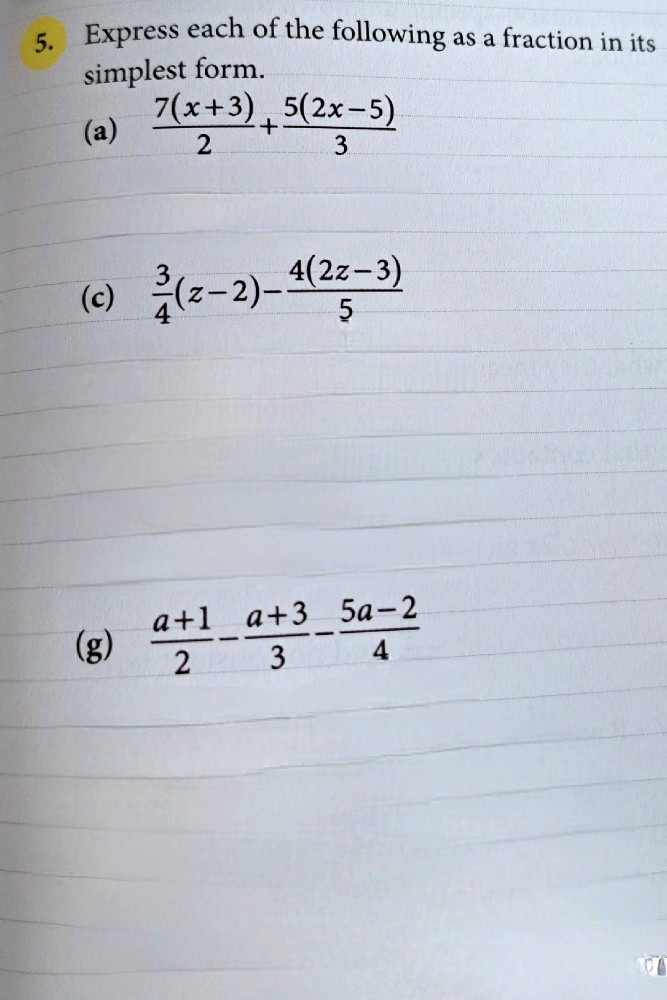 5. Express each of the following as a fraction in its
simplest form.
(a) 7(x+3)/2 + 5(2x-5)/3
(c) 3/4(z-2) - 4(2z-3)/5
(g) a+1/2 - a+3/3 - 5a-2/4